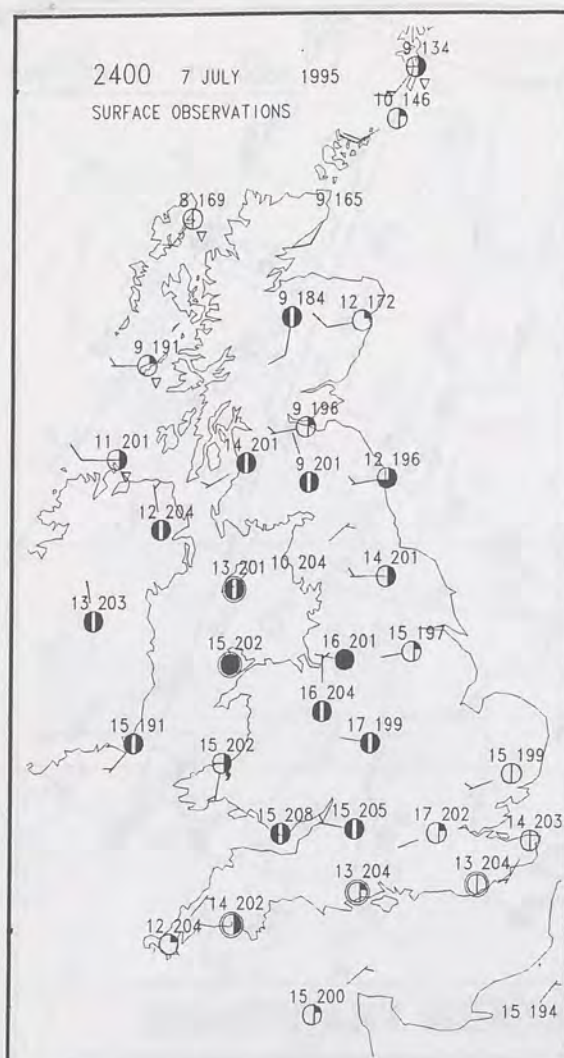 9 134
2400 7 JULY 1995
10 146
SURFACE OBSERVATIONS
8 169
9 165
4
9 184
12 172
9 191
9 196
11 201
14 201
9 201
12 196
12 204
13 201
10 204
14 201
13 203
15 202
16 201
15 197
16 204
15 191
17 199
15 202
15 199
15 208
15 205
17 202
14 203
13 204
13 204
14 202
12 204
15 200
15 194